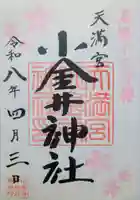 天満宮
小金井神社
令和八年四月三日